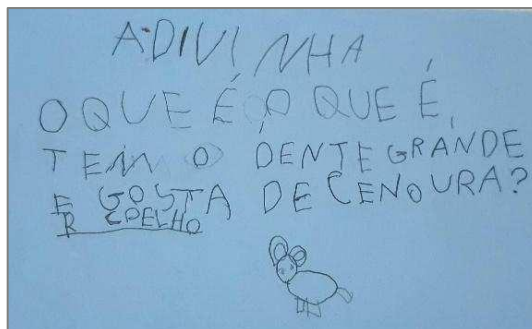 ADIVINHA
O QUE É, O QUE É,
TEM O DENTE GRANDE
E GOSTA DE CENOURA?
R COELHO